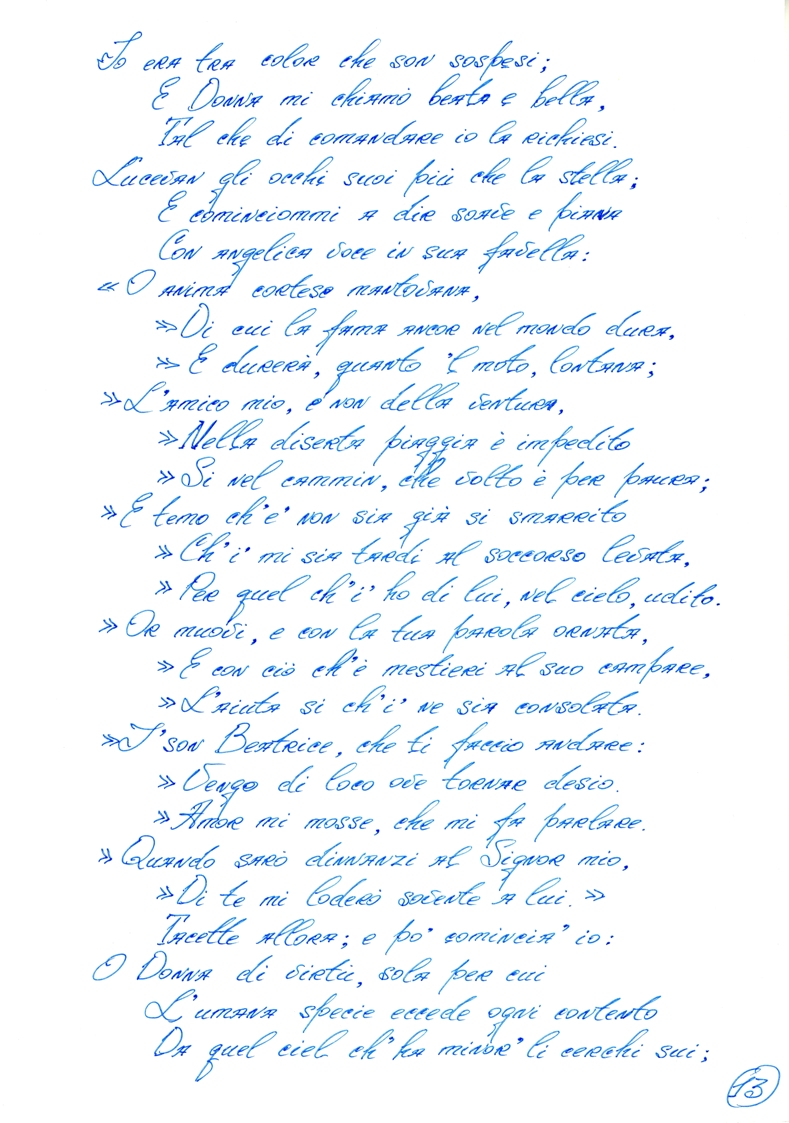 Io era tra color che son sospesi;
E Donna mi chiamò beata e bella,
Tal che di comandare io la richiesi.
Lucevan gli occhi suoi più che la stella;
E cominciommi a dir soave e piana
Con angelica voce in sua favella:
« O anima cortese mantovana,
» Di cui la fama ancor nel mondo dura,
» E durerà, quanto 'l moto, lontana;
» L'amico mio, e non della ventura,
» Nella diserta piaggia è impedito
» Sì nel cammin, che volto è per paura;
» E temo ch'e' non sia già sì smarrito
» Ch'i' mi sia tardi al soccorso levata,
» Per quel ch'i' ho di lui, nel cielo, udito.
» Or muovi, e con la tua parola ornata,
» E con ciò ch'è mestieri al suo campare,
» L'aiuta sì ch'i' ne sia consolata.
» I' son Beatrice, che ti faccio andare:
» Vengo di loco ove tornar desio.
» Amor mi mosse, che mi fa parlare.
» Quando sarò dinnanzi al Signor mio,
» Di te mi loderò sovente a lui. »
Tacette allora; e po' comincia' io:
O Donna di virtù, sola per cui
L'umana specie eccede ogni contento
Da quel ciel ch'ha minor' li cerchi sui;
13